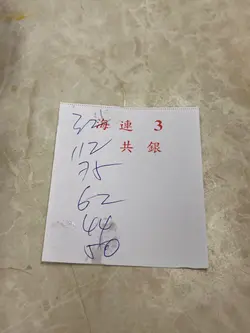 海連 3
共銀
112
75
62
44
50